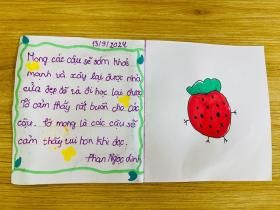 13/9/2024
Mong các cậu sẽ sớm khoẻ
mạnh và xây lại được nhà
cửa đẹp đẽ và đi học lại được
Tớ cảm thấy rất buồn cho các
cậu. Tớ mong là các cậu sẽ
cảm thấy vui hơn khi đọc.
Phan Ngọc Linh